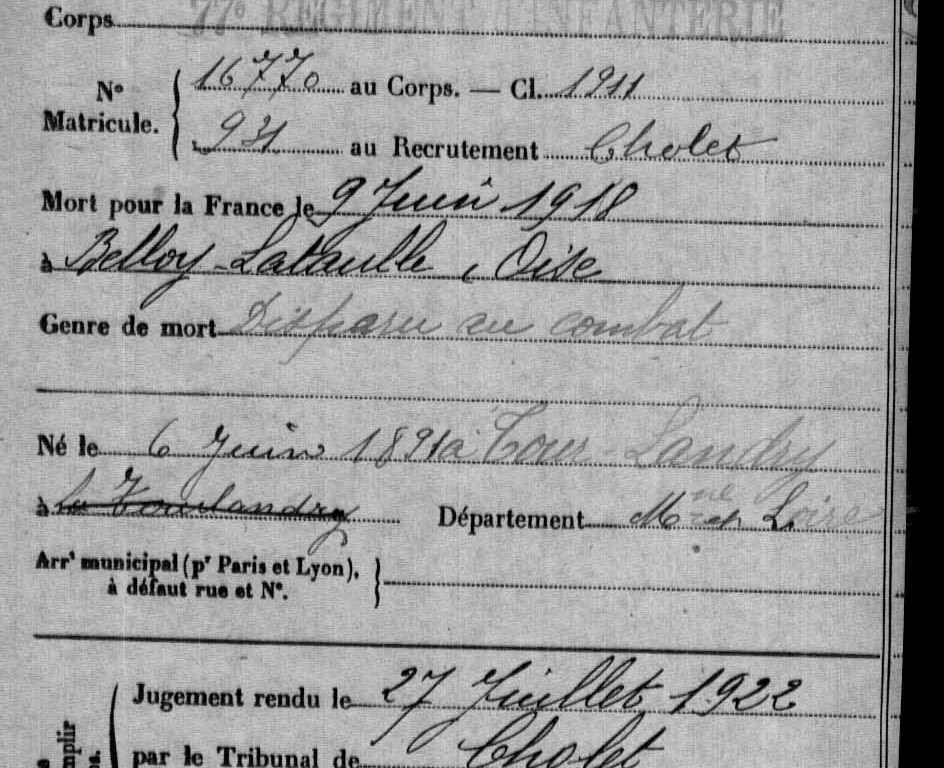 Corps 77e RÉGIMENT D'INFANTERIE
No Matricule. { 16770 au Corps. — Cl. 1911
931 au Recrutement Cholet
Mort pour la France le 9 Juin 1918
à Belloy-Lataulle, Oise
Genre de mort Disparu au combat
Né le 6 Juin 1891 à Tour-Landry
à la Tourlandry Département Mne et Loire
Arrt municipal (pr Paris et Lyon), à défaut rue et No. }
Jugement rendu le 27 Juillet 1922
par le Tribunal de Cholet